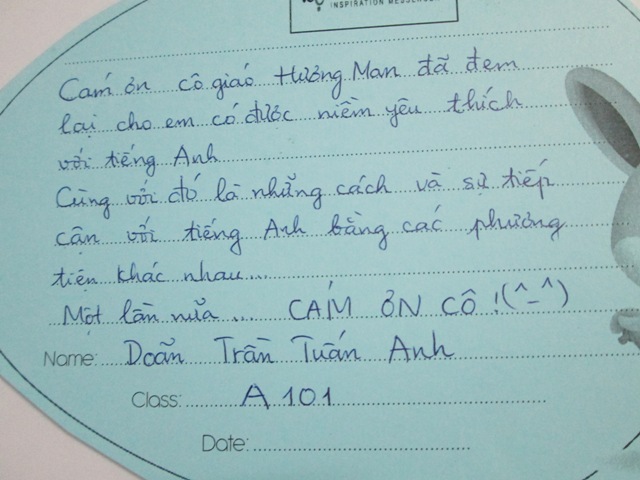 INSPIRATION MESSENGER
Cám ơn cô giáo Hương Man đã đem
lại cho em có được niềm yêu thích
với tiếng Anh
Cùng với đó là những cách và sự tiếp
cận với tiếng Anh bằng các phương
tiện khác nhau...
Một lần nữa... CÁM ƠN CÔ!(^_^)
Name: Doãn Trần Tuấn Anh
Class: A 101
Date: